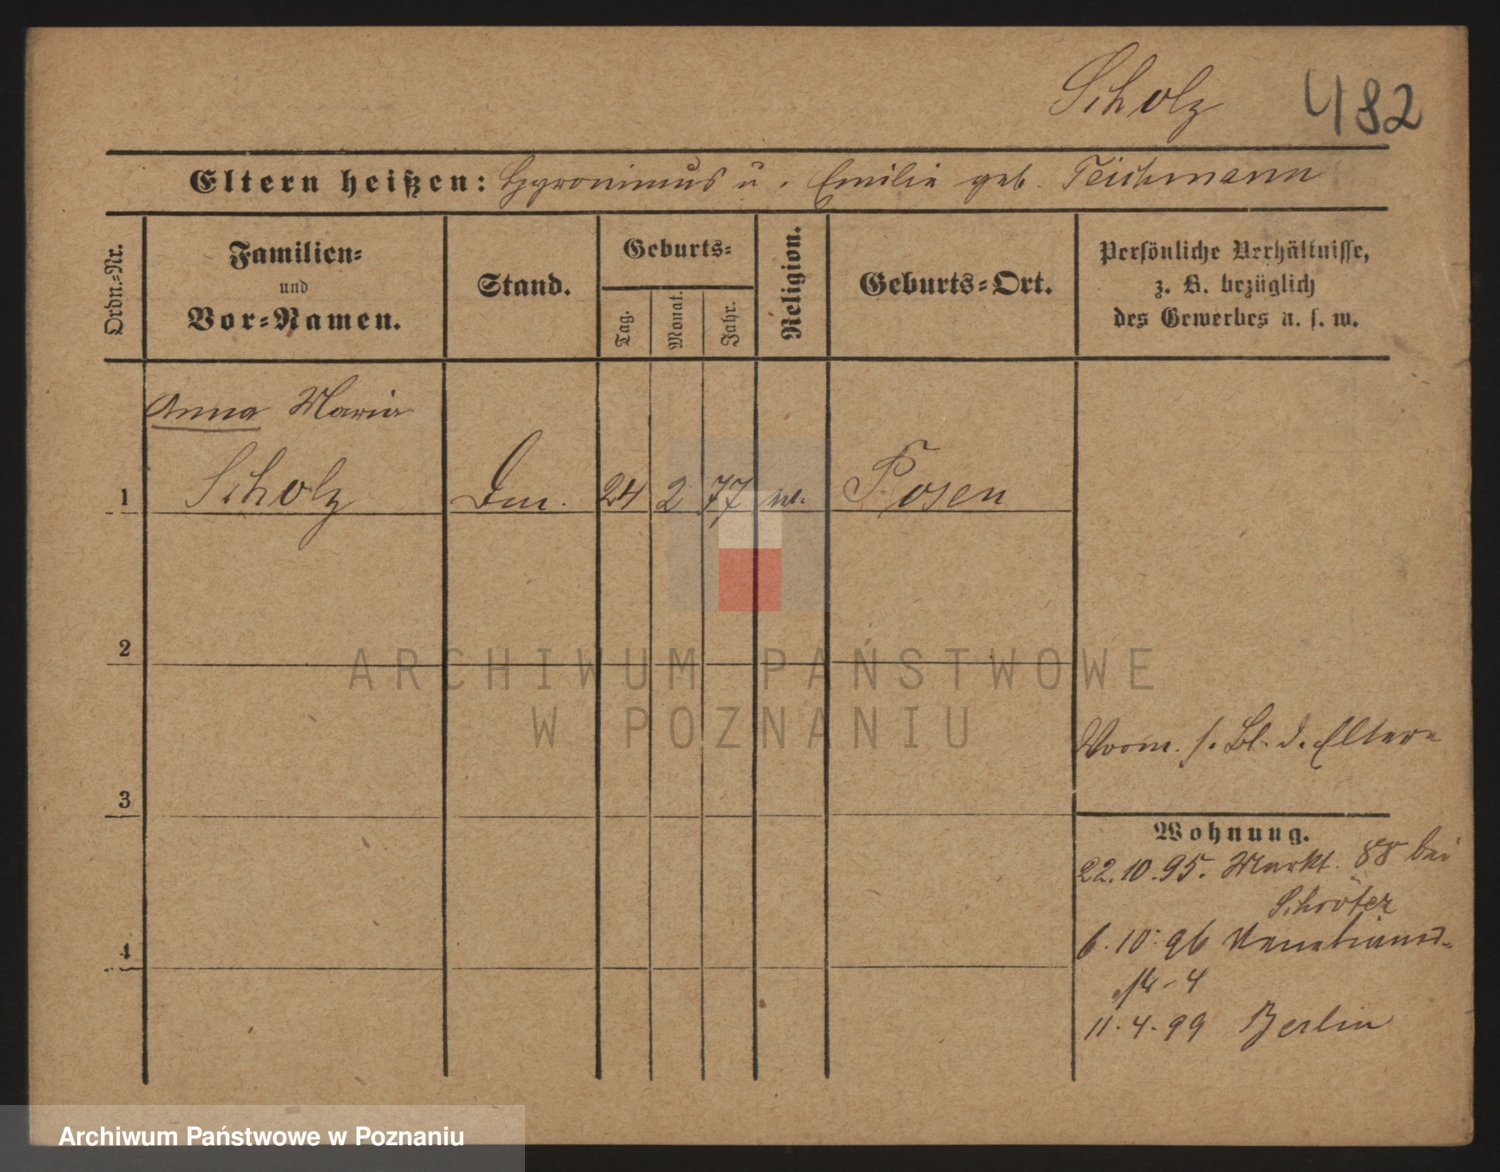 Scholz 482
Eltern heißen: Hyronimus u. Emilie geb. Teichmann
Ordn.-Nr.
Familien-
und
Vor-Namen.
Stand.
Geburts-
Tag.
Monat.
Jahr.
Religion.
Geburts-Ort.
Persönliche Verhältnisse,
z. B. bezüglich
des Gewerbes u. s. w.
Anna Maria
1 Scholz 24 2 77 Posen
2
ARCHIWUM PAŃSTWOWE
W POZNANIU
Vorm. s. Bl. d. Eltern
3
Wohnung.
22.10.95. Markt 88 bei
Schröter
4
6.10.96
14-4
11.4.99 Berlin
Archiwum Państwowe w Poznaniu